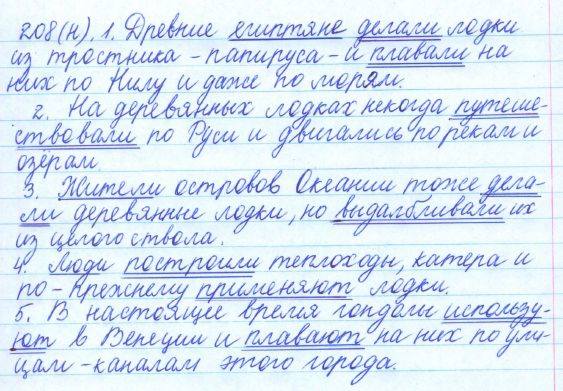 208(н). 1. Древние египтяне делали лодки
из тростника - папируса - и плавали на
них по Нилу и даже по морям.
2. На деревянных лодках некогда путеше-
ствовали по Руси и двигались по рекам и
озёрам.
3. Жители островов Океании тоже дела-
ли деревянные лодки, но выдалбливали их
из целого ствола.
4. Люди построили теплоходы, катера и
по-прежнему применяют лодки.
5. В настоящее время гондолы использу-
ют в Венеции и плавают на них по ули-
цам - каналам этого города.